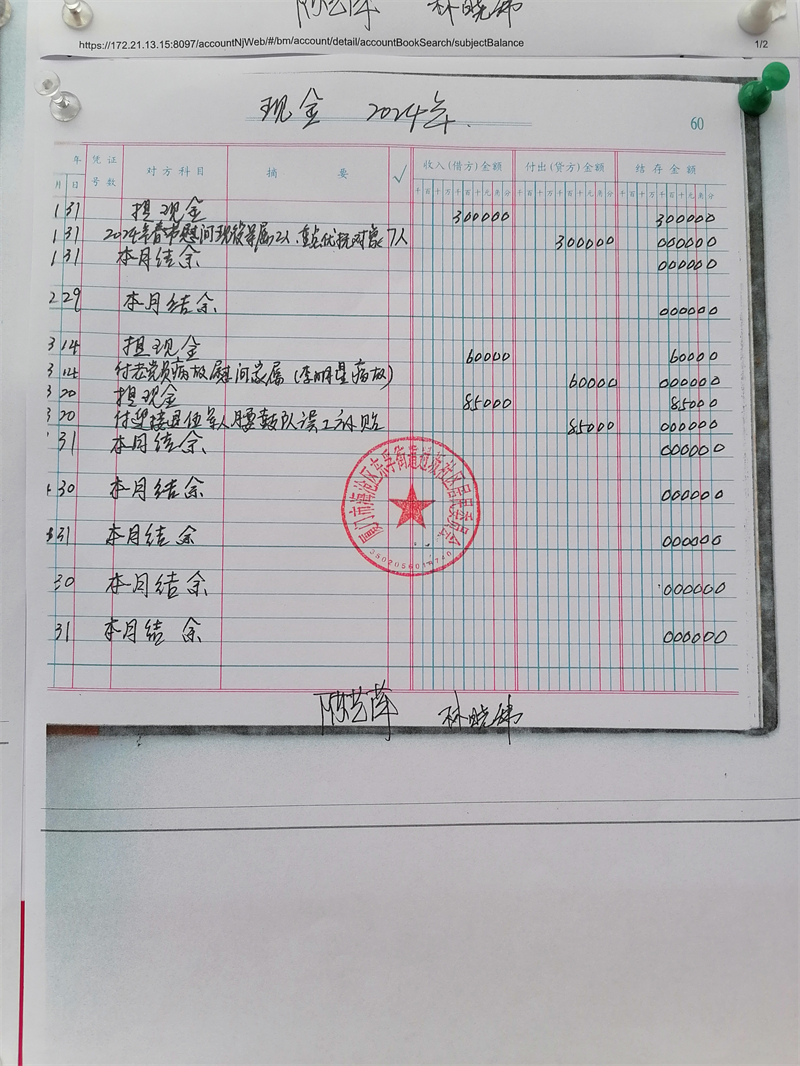 陈艺萍 林晓锦
https://172.21.13.15:8097/accountNjWeb/#/bm/account/detail/accountBookSearch/subjectBalance 1/2
现金 2024年.
60
年 凭证 对方科目 摘要 √ 收入(借方)金额 付出(贷方)金额 结存金额
月 日 号数 千百十万千百十元角分 千百十万千百十元角分 千百十万千百十元角分
1 31 提现金 300000 300000
1 31 2024年春节慰问现役军属2人、重点优抚对象7人 300000 000000
1 31 本月结余 000000
2 29 本月结余 000000
3 14 提现金 60000 60000
3 14 付老党员病故慰问家属(李明星病故) 60000 000000
3 20 提现金 85000 85000
3 20 付迎接退伍军人腰鼓队误工补贴 85000 000000
31 本月结余 000000
30 本月结余 000000
31 本月结余 000000
30 本月结余 000000
31 本月结余 000000
门市海沧区东孚街道过坂社区居民委员会
陈艺萍 林晓锦